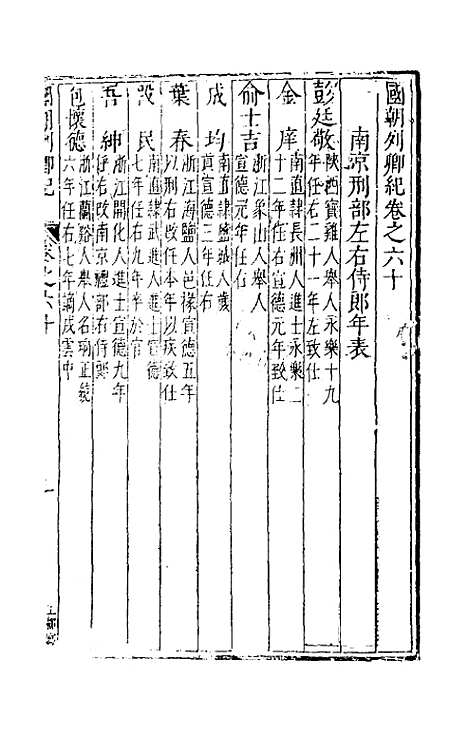 國朝列卿紀卷之六十
南京刑部左右侍郎年表
彭廷敬
陝西寶雞人舉人永樂十九
年任右二十一年左致仕
金庠
南直隸長洲人進士永樂二
十二年任右宣德元年致仕
俞士吉
浙江象山人舉人
宣德元年任右
成均
南直隸鹽城人歲
貢宣德三年任右
葉春
浙江海鹽人邑掾宣德五年
以刑右改任本年以疾致仕
段民
南直隸武進人進士宣德
七年任右九年卒於官
吾紳
浙江開化人進士宣德九年
任右改南京禮部右侍郎
包懷德
浙江蘭谿人舉人名瑜正統
六年任右七年謫戍雲中
國朝列卿紀
卷之六十
一